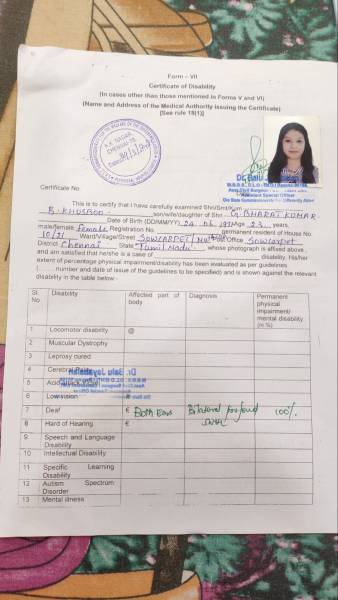 Form - VII
Certificate of Disability
(In cases other than those mentioned in Forms V and VI)
(Name and Address of the Medical Authority issuing the Certificate)
[See rule 18(1)]
K.K. NAGAR
CHENNAI
Certificate No.
This is to certify that I have carefully examined Shri/Smt/Kum
B. KHUSBOO son/wife/daughter of Shri G. BHARAT KUMAR
Date of Birth (DD/MM/YY) 24 Age 23 years,
male/female Female Registration No. permanent resident of House No.
10/21 Ward/Village/Street SOWCARPET/ Post Office Sowcarpet
District Chennai State Tamil Nadu whose photograph is affixed above
and am satisfied that he/she is a case of disability. His/her
extent of percentage physical impairment/disability has been evaluated as per guidelines
( number and date of issue of the guidelines to be specified) and is shown against the relevant
disability in the table below:-
Sl. No. Disability Affected part of body Diagnosis Permanent physical impairment/ mental disability (in %)
1 Locomotor disability @
2 Muscular Dystrophy
3 Leprosy cured
4 Cerebral Palsy
5 Acid
6 Low vision #
7 Deaf € Both Ears Bilateral profound SNHL 100%
8 Hard of Hearing €
9 Speech and Language Disability
10 Intellectual Disability
11 Specific Learning Disability
12 Autism Spectrum Disorder
13 Mental illness